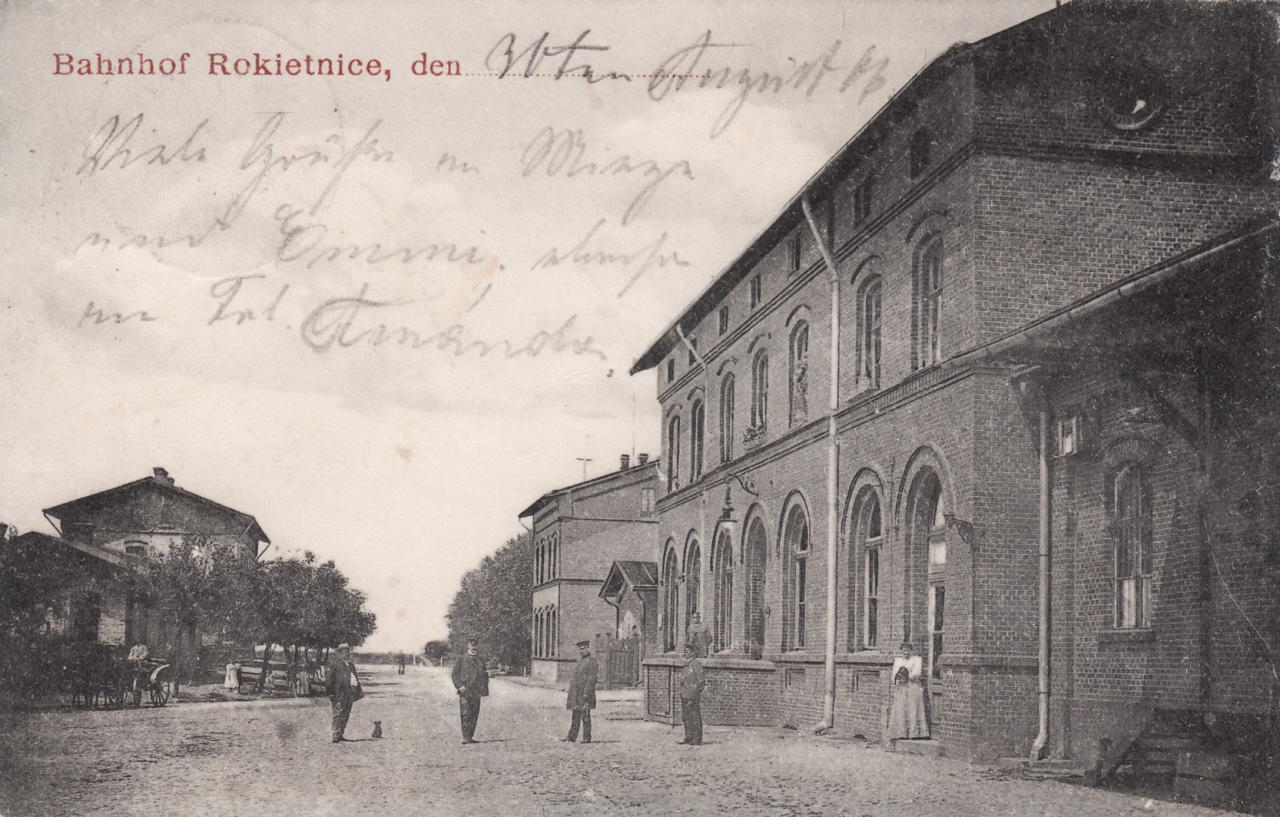 Bahnhof Rokietnice, den 30ten August 06
Viele Grüße an Mieze
und Emmi. ebenso
an Frl. Amanda.